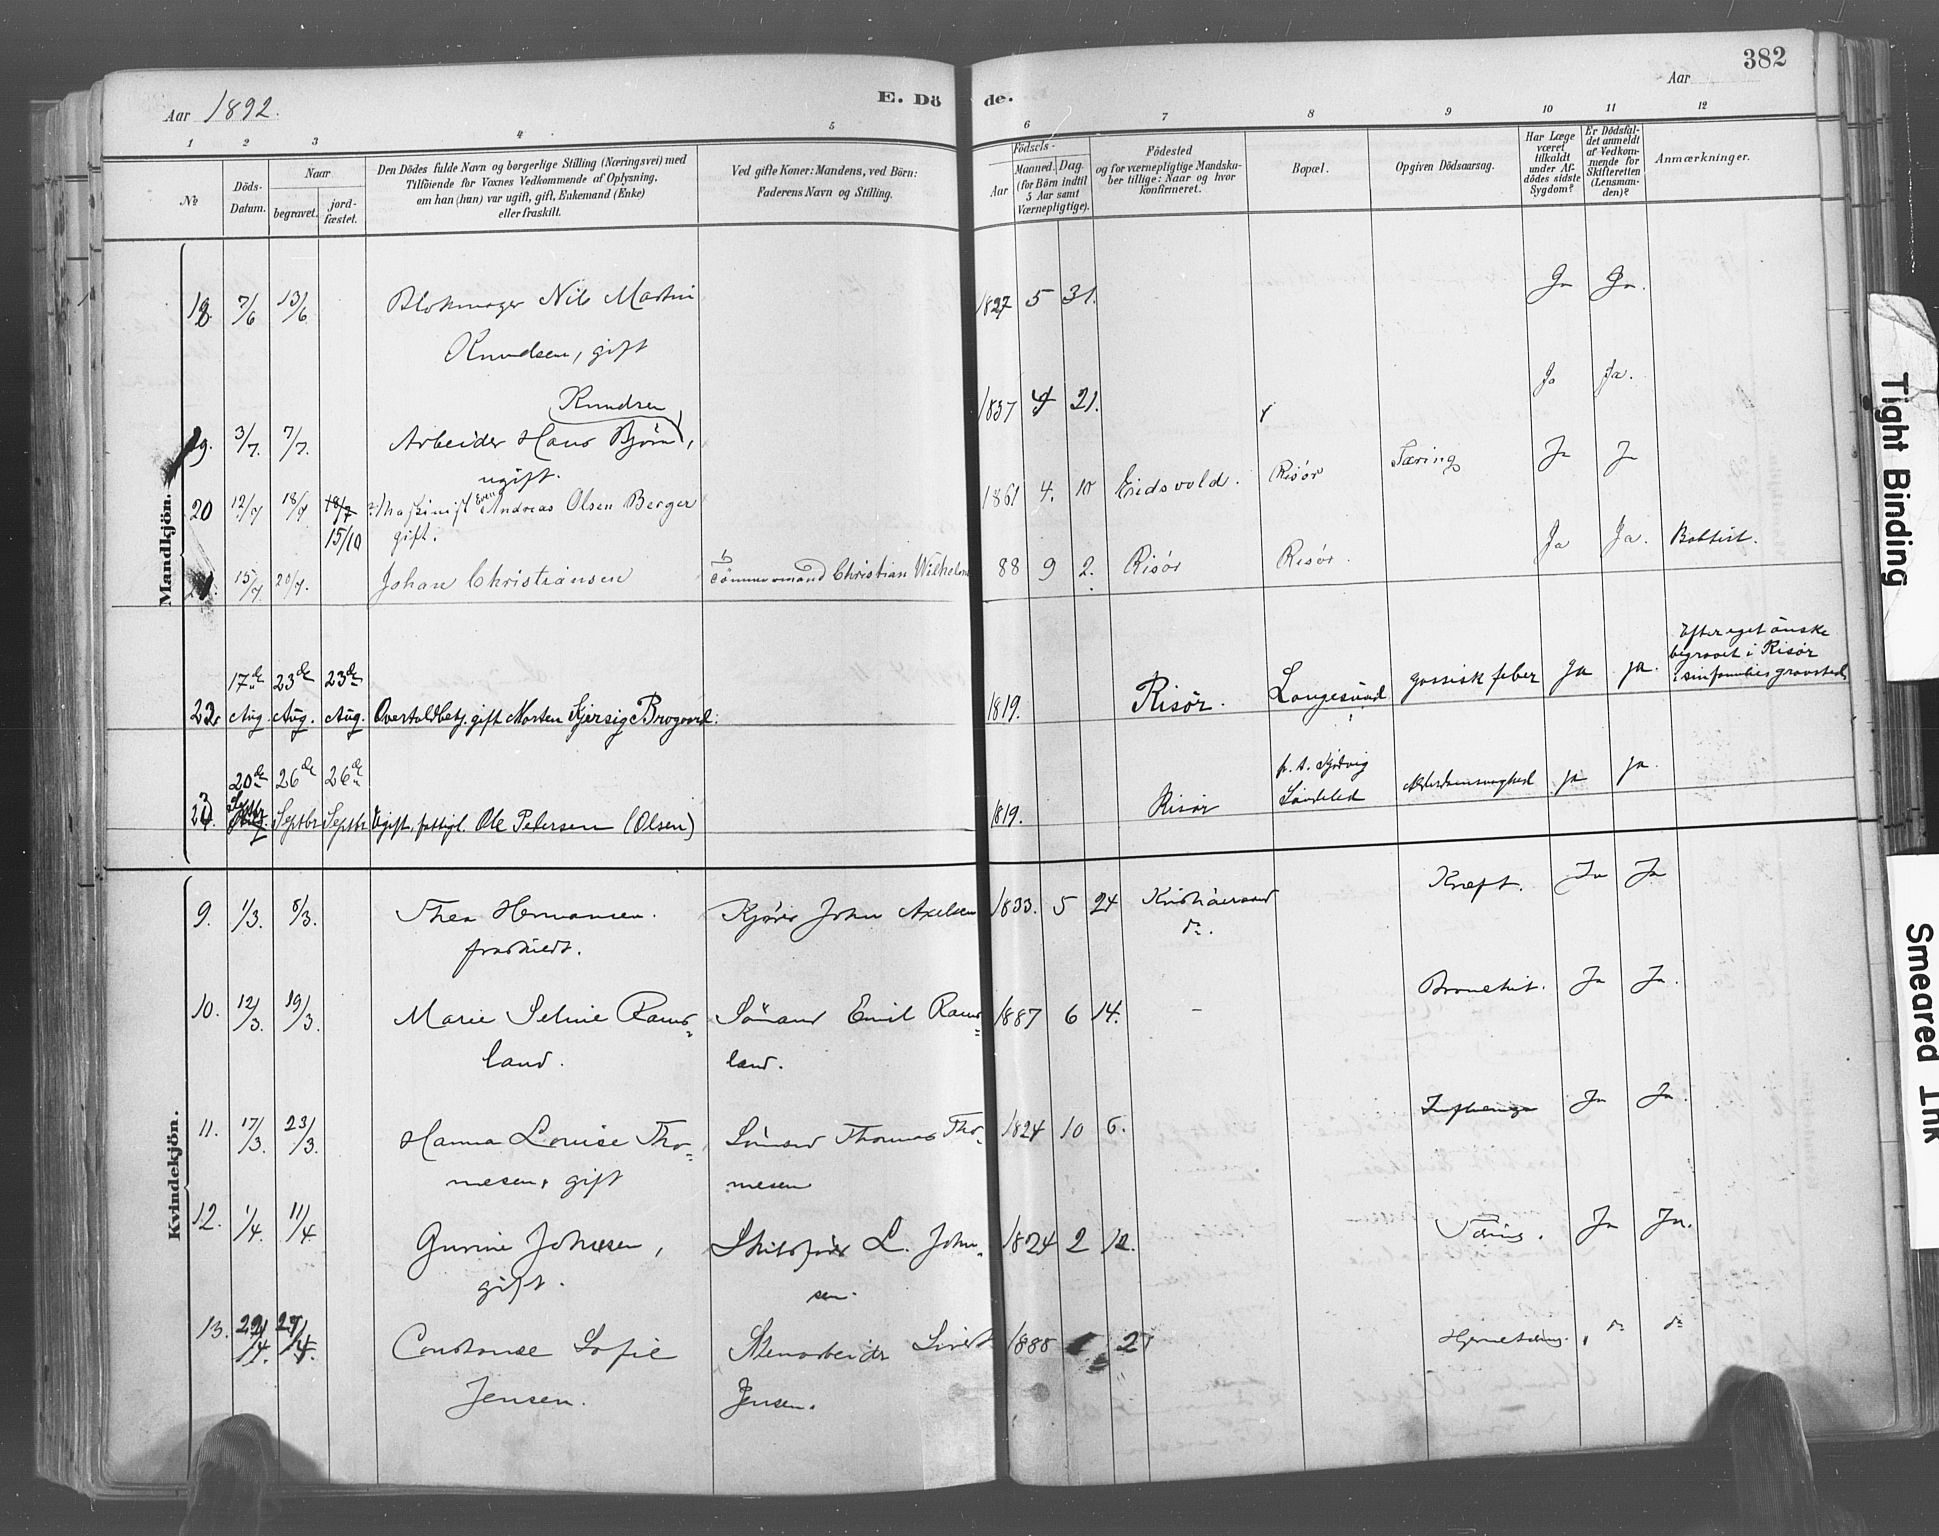 382
Aar 1892.
E. Dö de.
Aar
1 2 3 4 5 6 7 8 9 10 11 12
№
Döds-Datum.
Naar
begravet.
jord-fæstet.
Den Dödes fulde Navn og borgerlige Stilling (Næringsvei) med
Tilföiende for Voxnes Vedkommende af Oplysning,
om han (hun) var ugift, gift, Enkemand (Enke)
eller fraskilt.
Ved gifte Koner: Mandens, ved Börn:
Faderens Navn og Stilling.
Födsels-
Aar
Maaned. Dag.
(for Börn indtil
5 Aar samt
Værnepligtige).
Födested
og for værnepligtige Mandska-
ber tillige: Naar og hvor
konfirmeret.
Bopæl.
Opgiven Dödsaarsag.
Har Læge
været
tilkaldt
under Af-
dödes sidste
Sygdom?
Er Dödsfal-
det anmeldt
af Vedkom-
mende for
Skifteretten
(Lensman-
den)?
Anmærkninger.
Mandkjön.
18 7/6 13/6 Blokmager Nils Martin 1827 5 31. Ja Ja.
Knudsen, gift
Knudsen 1837 4 21. Ja Ja.
19. 3/7. 7/7. Arbeider Hans Bjørn,
ugift.
20 12/7 18/7 18/7 Maskinist Even Andreas Olsen Berger 1861 4. 10 Eidsvold. Risør Tæring Ja Ja
15/10 gift.
15/7. 20/7. Johan Christiansen Tömmermand Christian Wilhelm 88 9 2. Risør Risør. Ja Ja. Babtist.
17de 23de 23de
22. Aug. Aug. Aug. Overtoldbetj. gift Morten Kjersig Brogaard. 1819. Risør. Langesund gassisk feber Ja ja. Efter eget önske
begravet i Risør
i sin families gravsted
20de 26de 26de
23 Septbr Septbr Septbr Ugift, fattigl. Ole Petersen (Olsen) 1819. Risør p. t. Sjødvig
Söndeled Alderdomssvaghed ja ja.
Kvindekjön.
9. 1/3. 8/3. Thea Hermansen. Kjører John Axelsen 1833. 5 24 Kristiansand Kræft. Ja Ja
fraskildt. do.
10. 12/3. 19/3. Marie Seline Rams= Sömand Emil Rams= 1887 6 14. - Bronchit. Ja Ja.
land. land.
11. 17/3. 23/3. Hanna Louise Tho= Sömand Thomas Tho= 1824 10 6. Influenza Ja Ja.
mesen, gift mesen
12. 1/4. 11/4 Gurine Johnsen, Skibsfører L. John= 1824 2 12. Tæring. Ja Ja.
gift. sen.
13. 22/4. 29/4. Constance Sofie Stenarbeider Sivert 1888 2 Hjernebetænd. do do
Jensen. Jensen.
Tight Binding
Smeared Ink